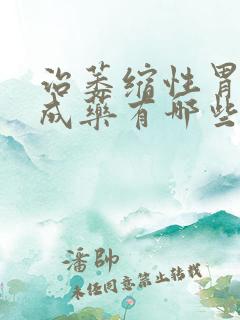 治萎缩性胃
成药有哪些
潘帥
未经同意禁止转载